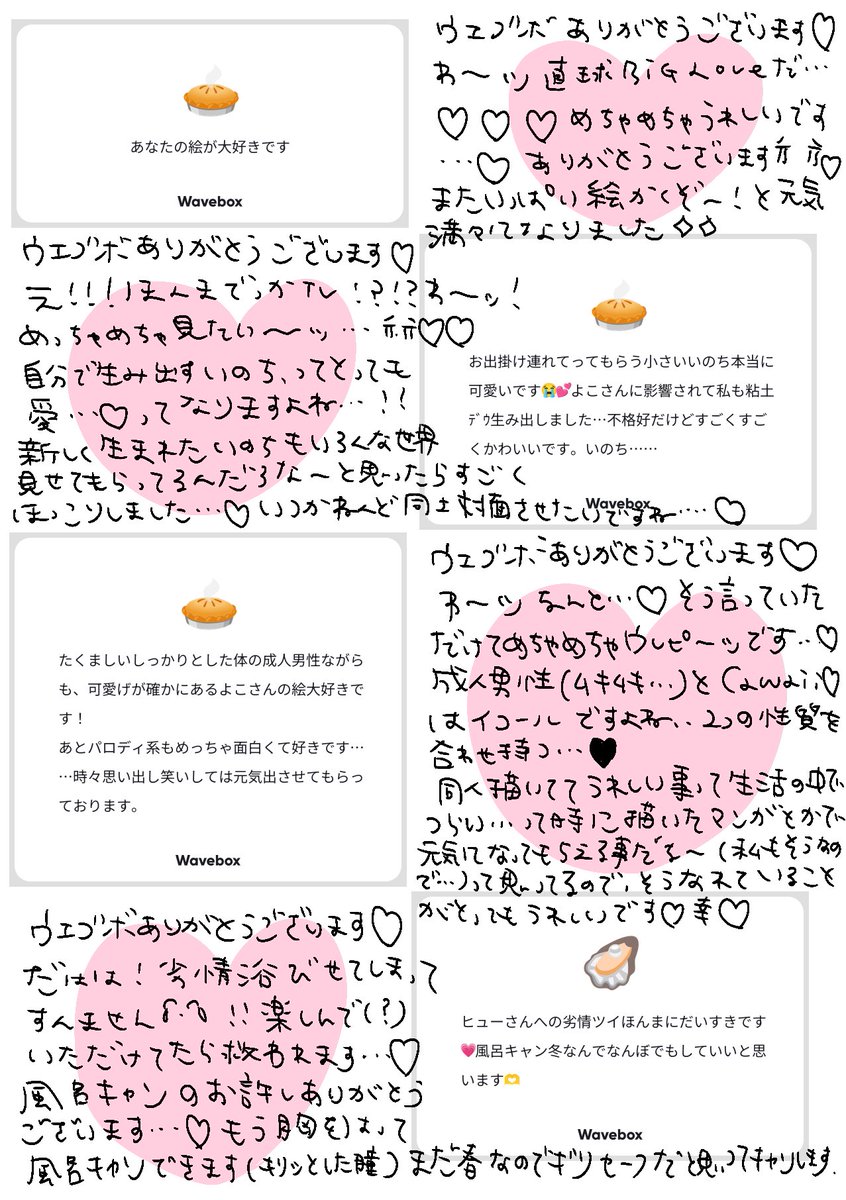 あなたの絵が大好きです
Wavebox
ウエブボありがとうございます♡
わ〜ッ 直球BiG Loveだ…
♡♡♡めちゃめちゃうれしいです
…♡ありがとうございます♡
またいっぱい絵かくぞ〜!と元気
満々になりました◇◇
お出掛け連れてってもらう小さいいのち本当に
可愛いです😭💕よこさんに影響されて私も粘土
デゥ生み出しました…不格好だけどすごくすご
くかわいいです。いのち……
Wavebox
ウエブボありがとうございます♡
え!!!!!?!?わ〜ッ!
めっちゃめちゃ見たい〜ッ…♡♡
自分で生み出すいのち、ってとっても
愛…♡ってなりますよね…!!
新しく生まれたいのちもいろんな世界
見せてもらってるんだろな〜と思ったらすごく
ほっこりしました…♡いつかねんど同士対面させたいですね…♡
たくましいしっかりとした体の成人男性ながら
も、可愛げが確かにあるよこさんの絵大好きで
す!
あとパロディ系もめっちゃ面白くて好きです…
…時々思い出し笑いしては元気出させてもらっ
ております。
Wavebox
ウエブボありがとうございます♡
わ〜ッなんと…♡そう言っていた
だけてめちゃめちゃウレピ〜ッです…♡
成人男性(ムキムキ…)とCawaii♡
はイコールですよね…2つの性質を
合わせ持つ…♥
同人描いててうれしい事って生活の中で
つらい…って時に描いたマンガとかで
元気になってもらえる事だな〜(私もそうなの
で…)って思ってるので、そうなれていること
がとってもうれしいです♡幸♡
ヒューさんへの劣情ツイほんまにだいすきです
💗風呂キャン冬なんでなんぼでもしていいと思
います🫶
Wavebox
ウエブボありがとうございます♡
だはは!劣情浴びせてしまって
すんません!!楽しんで(?)
いただけてたら救われます…♡
風呂キャンのお許しありがとう
ございます…♡もう胸をはって
風呂キャンできます(キリッとした瞳)まだ春なのでギリセーフだと思ってキャンします.